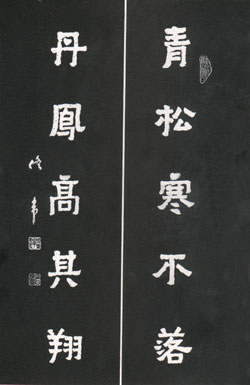 青松寒不落
丹鳳高其翔